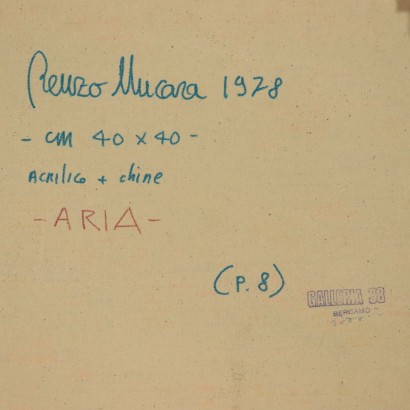 Renzo Nucara 1978
- cm 40 x 40 -
ACRILICO + chine
- ARIA -
(P. 8)
GALLERIA 38
BERGAMO